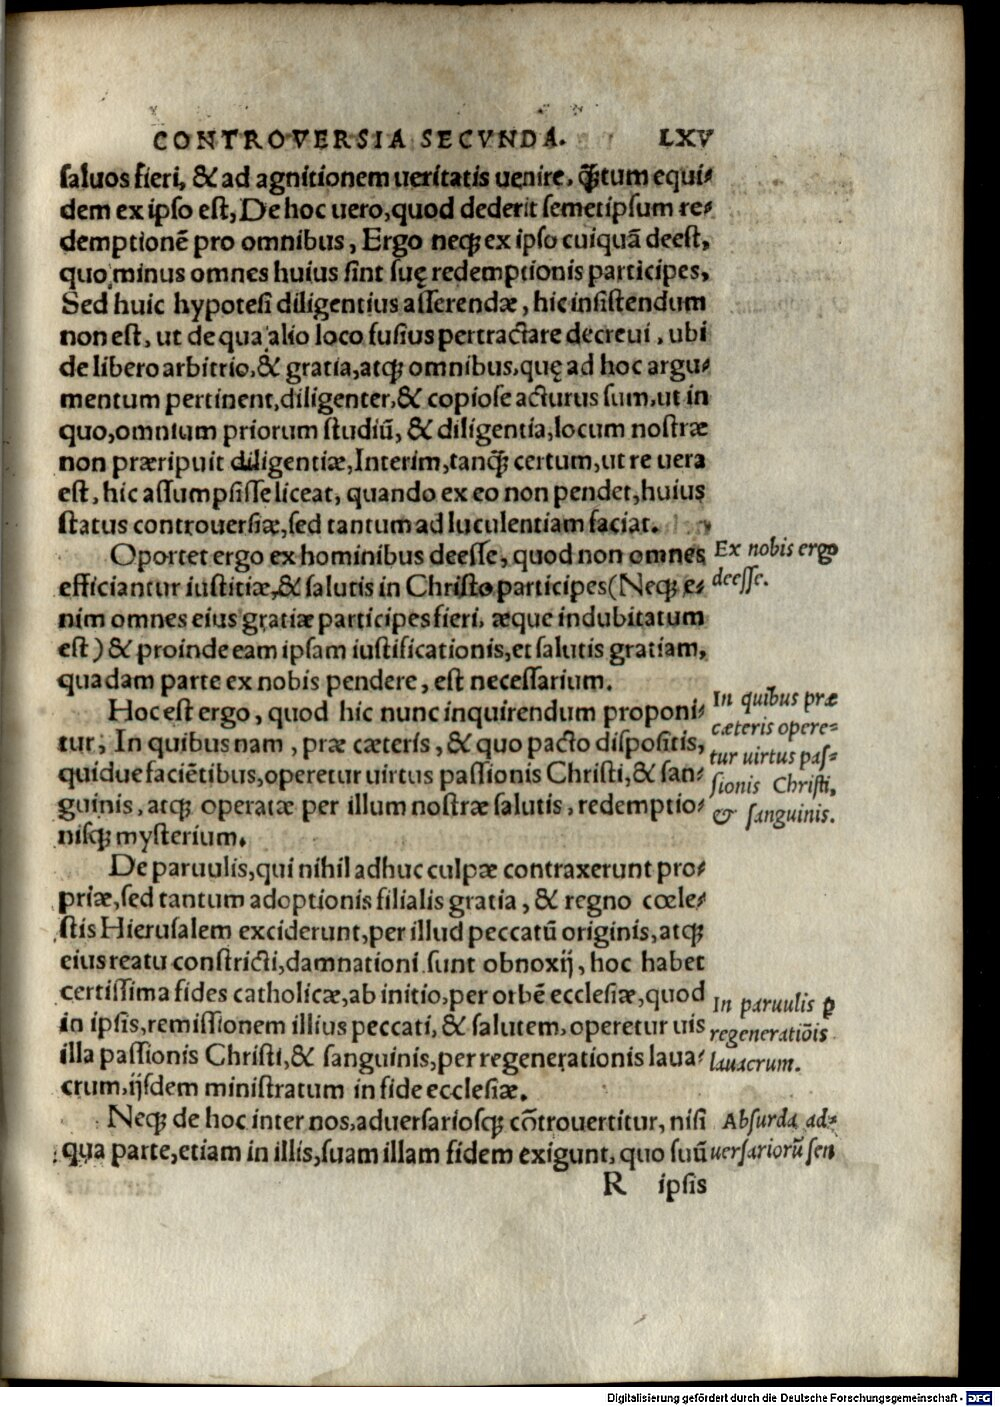 CONTROVERSIA SECVNDA. LXV
saluos fieri, & ad agnitionem ueritatis uenire, ꝙ̃tum equi-
dem ex ipso est, De hoc uero, quod dederit semetipsum re-
demptionē pro omnibus, Ergo neqꝫ ex ipso cuiquā deest,
quo minus omnes huius sint suę redemptionis participes,
Sed huic hypotesi diligentius asserendæ, hic insistendum
non est, ut de qua alio loco fusius pertractare decreui, ubi
de libero arbitrio, & gratia, atqꝫ omnibus, quę ad hoc argu-
mentum pertinent, diligenter, & copiose acturus sum, ut in
quo, omnium priorum studiū, & diligentia, locum nostræ
non præripuit diligentiæ, Interim, tanꝙ̃ certum, ut re uera
est, hic assumpsisse liceat, quando ex eo non pendet, huius
status controuersiæ, sed tantum ad luculentiam faciat.
Oportet ergo ex hominibus deesse, quod non omnes
Ex nobis ergo
efficiantur iustitiæ, & salutis in Christo participes (Neqꝫ e-
deesse.
nim omnes eius gratiæ participes fieri, æque indubitatum
est) & proinde eam ipsam iustificationis, et salutis gratiam,
quadam parte ex nobis pendere, est necessarium.
Hoc est ergo, quod hic nunc inquirendum proponi-
In quibus præ
tur, In quibus nam, præ cæteris, & quo pacto dispositis,
cæteris opere-
quidue faciētibus, operetur uirtus passionis Christi, & san-
tur uirtus pas-
guinis, atqꝫ operatæ per illum nostræ salutis, redemptio-
sionis Christi,
nisqꝫ mysterium.
& sanguinis.
De paruulis, qui nihil adhuc culpæ contraxerunt pro-
priæ, sed tantum adoptionis filialis gratia, & regno cœle-
stis Hierusalem exciderunt, per illud peccatū originis, atqꝫ
eius reatu constricti, damnationi sunt obnoxij, hoc habet
certissima fides catholicæ, ab initio, per orbē ecclesiæ, quod
In paruulis ꝑ
in ipsis, remissionem illius peccati, & salutem, operetur uis
regeneratiōis
illa passionis Christi, & sanguinis, per regenerationis laua-
lauacrum.
crum, ijsdem ministratum in fide ecclesiæ.
Neqꝫ de hoc inter nos, aduersariosqꝫ cōtrouertitur, nisi
Absurda ad-
qua parte, etiam in illis, suam illam fidem exigunt, quo suū
uersariorū sen
R ipsis
Digitalisierung gefördert durch die Deutsche Forschungsgemeinschaft - DFG